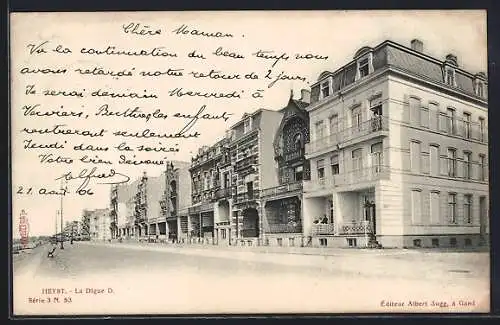 Chère Maman.
Vu la continuation du beau temps nous
avons retardé notre retour de 2 jours,
Je serai demain Mercredi à
Verviers, Berthe & les enfants
rentreront seulement
Jeudi dans la soirée
Votre bien dévoué
Alfred
21 août 06
HEYST. - La Digue D.
Série 3 N. 53
Éditeur Albert Sugg, à Gand